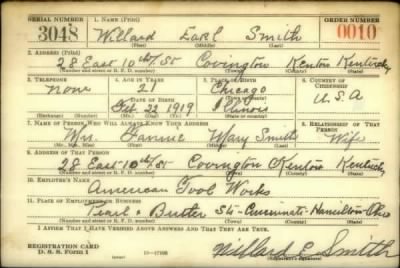 SERIAL NUMBER 1. NAME (Print) ORDER NUMBER
3048 Willard Earl Smith 0010
(First) (Middle) (Last)
2. ADDRESS (Print)
28 East 10th St Covington Kenton Kentucky
(Number and street or R. F. D. number) (Town) (County) (State)
3. TELEPHONE 4. AGE IN YEARS 5. PLACE OF BIRTH 6. COUNTRY OF CITIZENSHIP
None 21 Chicago
DATE OF BIRTH
Feb. 21 1919 Illinois U.S.A
7. NAME OF PERSON WHO WILL ALWAYS KNOW YOUR ADDRESS 8. RELATIONSHIP OF THAT PERSON
Mrs. Fannie Mary Smith Wife
(Mr., Mrs., Miss) (First) (Middle) (Last)
9. ADDRESS OF THAT PERSON
28 East-10th/St Covington Kenton Kentucky
(Number and street or R. F. D. number) (Town) (County) (State)
10. EMPLOYER'S NAME
American Tool Works
11. PLACE OF EMPLOYMENT OR BUSINESS
Pearl & Butler Sts-Cincinnati-Hamilton-Ohio
(Number and street or R. F. D. number) (Town) (County) (State)
I AFFIRM THAT I HAVE VERIFIED ABOVE ANSWERS AND THAT THEY ARE TRUE.
REGISTRATION CARD
D. S. S. Form 1 Willard E Smith